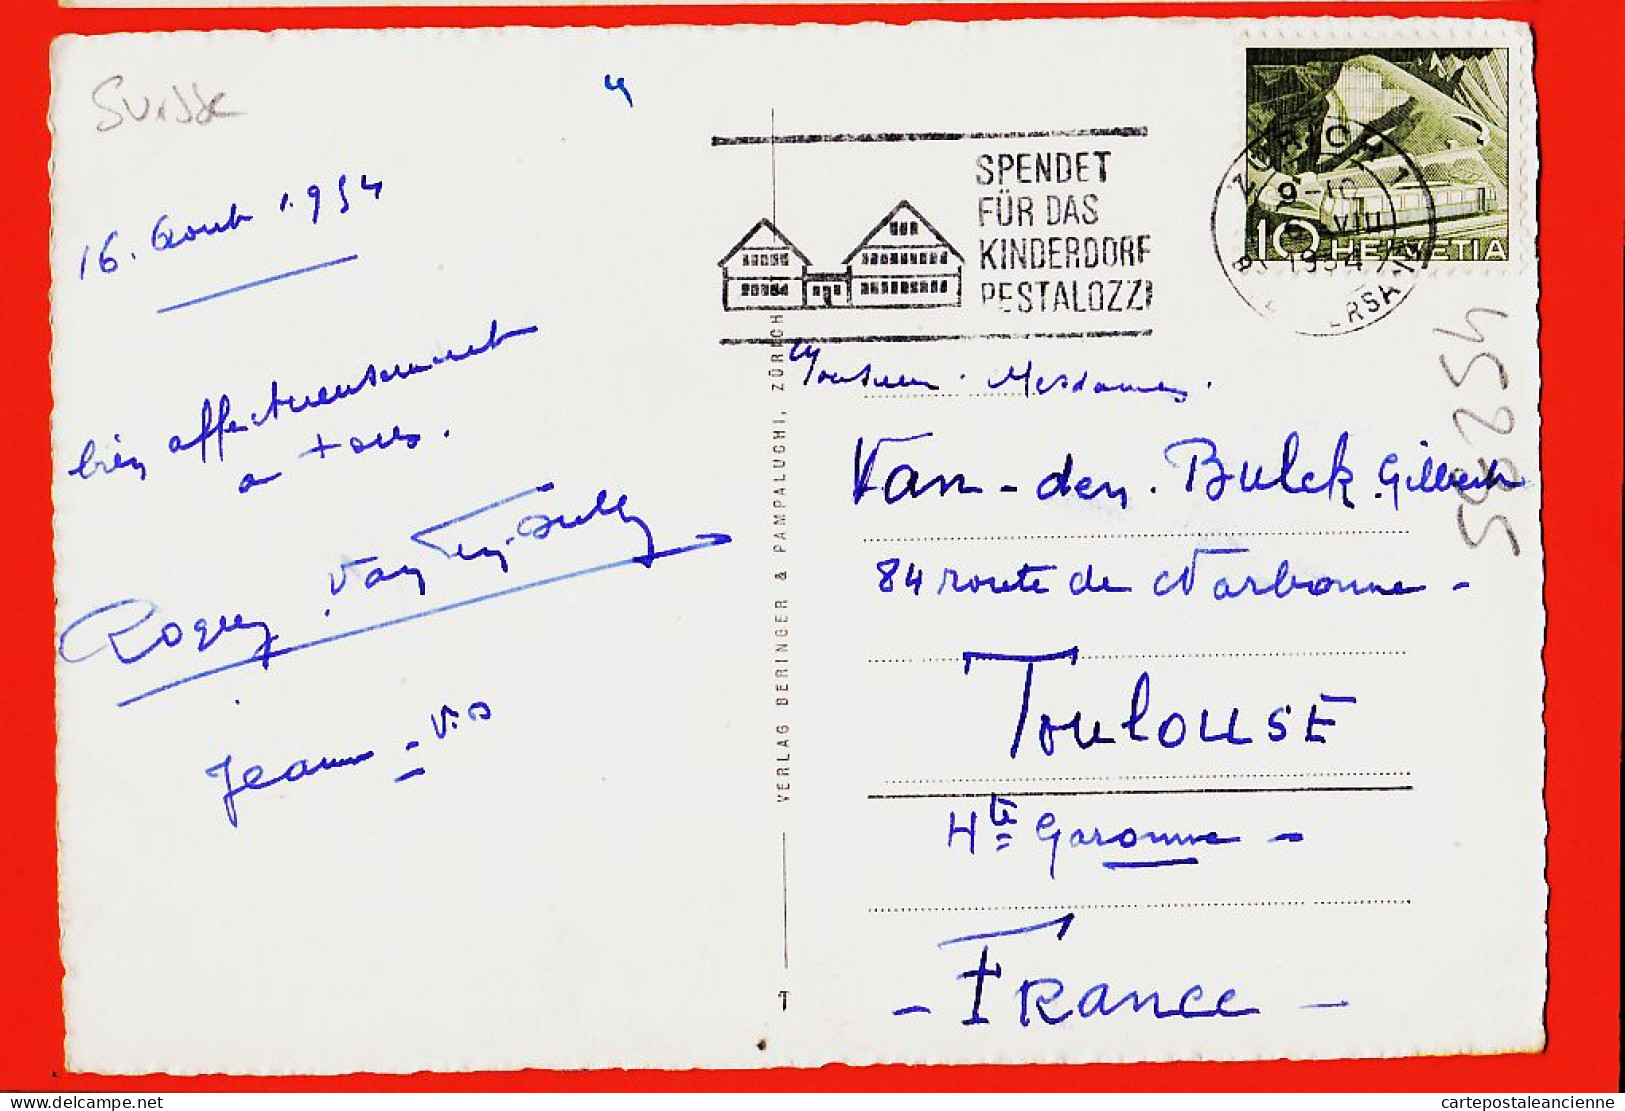 Suisse
16. Aout 1954
bien affectueusement
a tous.
Roger Van
Jeanne - V.D
VERLAG BERINGER & PAMPALUCHI, ZÜRICH
SPENDET
FÜR DAS
KINDERDORF
PESTALOZZI
ZÜRICH 1
9-10
VIII
1954
10 HELVETIA
Monsieur. Mesdames.
Van-den. Bulck. Gilbert
84 route de Narbonne -
TOULOUSE
Hte Garonne -
- FRANCE -
45295
cartepostaleancienne